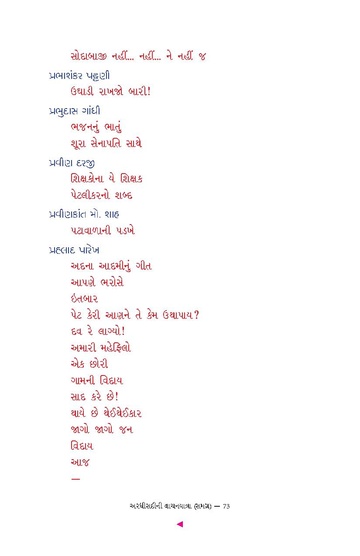 સોદાબાજી નહીં... નહીં... ને નહીં જ
પ્રભાશંકર પટ્ટણી
ઉઘાડી રાખજો બારી!
પ્રભુદાસ ગાંધી
ભજનનું ભાતું
શૂરા સેનાપતિ સાથે
પ્રવીણ દરજી
શિક્ષકોના યે શિક્ષક
પેટલીકરનો શબ્દ
પ્રવીણકાંત મો. શાહ
પટાવાળાની પડખે
પ્રહ્લાદ પારેખ
અદના આદમીનું ગીત
આપણે ભરોસે
ઇતબાર
પેટ કેરી આણને તે કેમ ઉથાપાય?
દવ રે લાગ્યો!
અમારી મહેફિલો
એક છોરી
ગામની વિદાય
સાદ કરે છે!
થાયે છે થેઈથેઈકાર
જાગો જાગો જન
વિદાય
આજ
—
અરધીસદીની વાચનયાત્રા (સમગ્ર) — 73